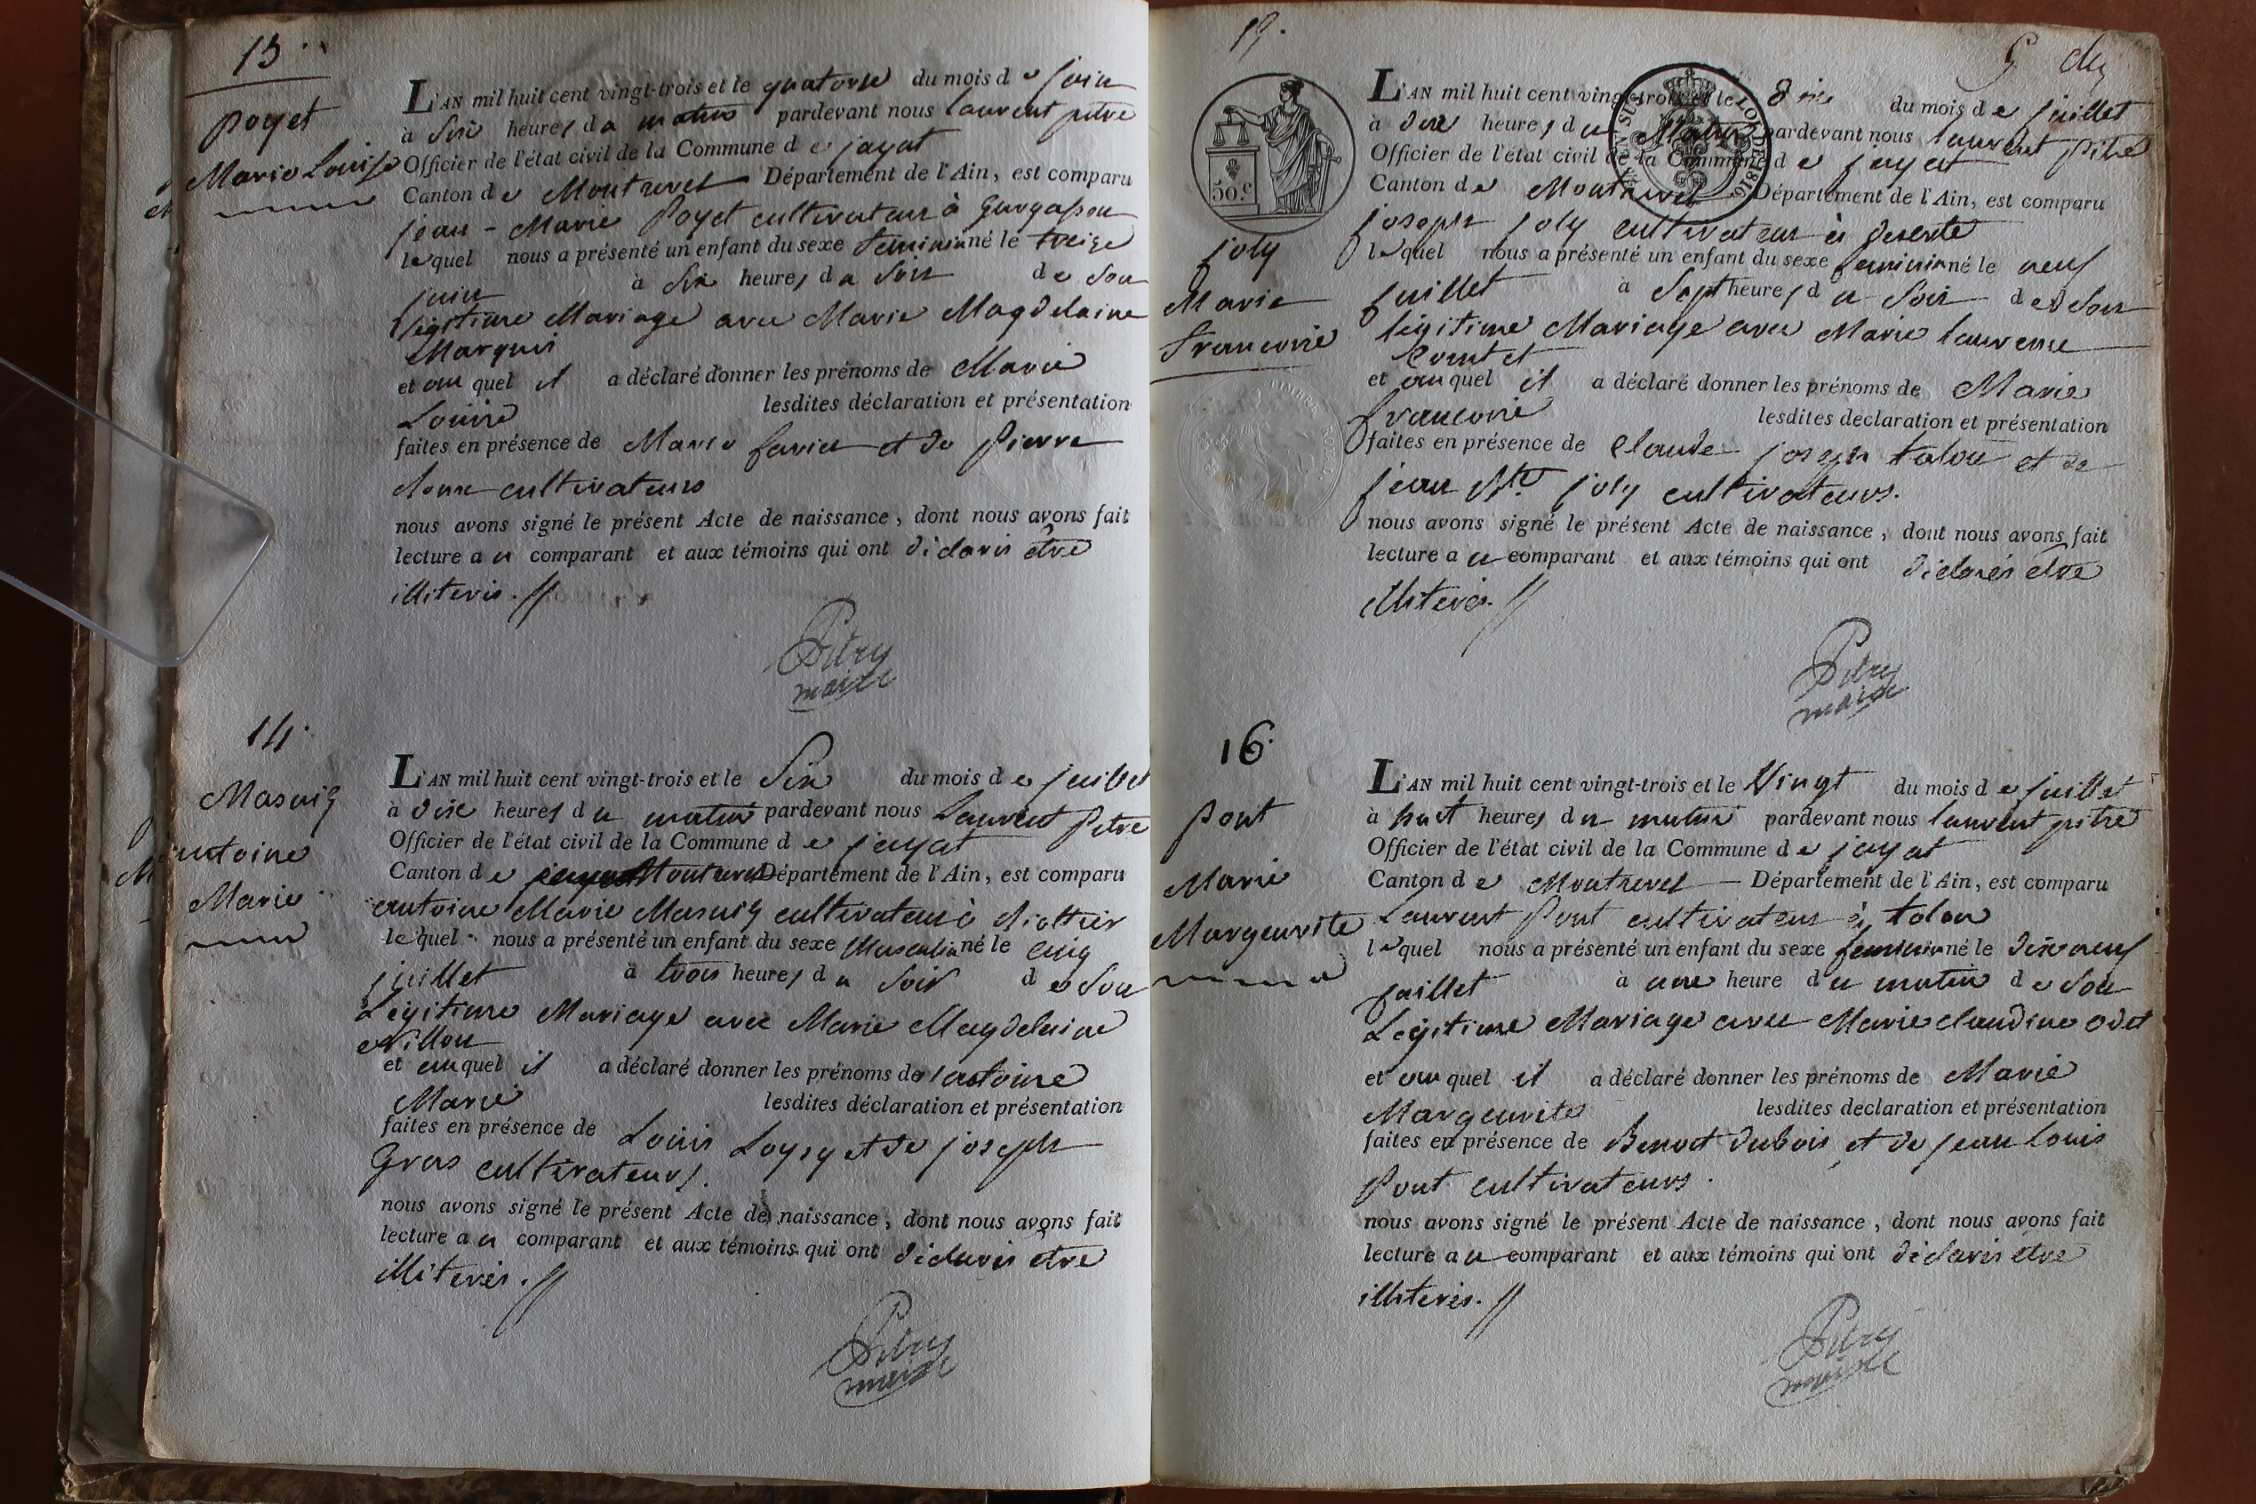 13.
Poyet
Marie Louise
L'AN mil huit cent vingt-trois et le quatorse du mois de juin
à Six heures du matin pardevant nous laurent pitre
Officier de l'état civil de la Commune de jayat
Canton de Montrevel Département de l'Ain, est comparu
jean-Marie Poyet cultivateur à
lequel nous a présenté un enfant du sexe feminin né le treize
juin à Six heures du Soir de Son
légitime Mariage avec Marie Magdelaine
Marquis
et auquel il a déclaré donner les prénoms de Marie
Louise
lesdites déclaration et présentation
faites en présence de Marie favier et de Pierre
cultivateurs
nous avons signé le présent Acte de naissance, dont nous avons fait
lecture au comparant et aux témoins qui ont déclarés être
illiterés.
Pitre
maire
14.
Masuiy
antoine
Marie
L'AN mil huit cent vingt-trois et le Six du mois de juillet
à dix heures du matin pardevant nous Laurent Pitre
Officier de l'état civil de la Commune de jayat
Canton de Montrevel Département de l'Ain, est comparu
antoine Marie Masuiy cultivateur à
lequel nous a présenté un enfant du sexe Masculin né le cinq
juillet à trois heures du Soir de Son
Légitime Mariage avec Marie Magdelaine
et auquel il a déclaré donner les prénoms de antoine
Marie
lesdites déclaration et présentation
faites en présence de Louis Loysy et de joseph
Gras cultivateurs.
nous avons signé le présent Acte de naissance, dont nous avons fait
lecture au comparant et aux témoins qui ont déclarés etre
illiterés.
Pitre
maire
15.
50.c
LOI DE 1816
joly
Marie
francoise
L'AN mil huit cent vingt-trois et le dix du mois de juillet
à dix heures du Matin pardevant nous laurent Pitre
Officier de l'état civil de la Commune de jayat
Canton de Montrevel Département de l'Ain, est comparu
joseph joly cultivateur à
lequel nous a présenté un enfant du sexe feminin né le neuf
juillet à Sept heures du Soir de Son
légitime Mariage avec Marie laurence
et auquel il a déclaré donner les prénoms de Marie
francoise
lesdites declaration et présentation
faites en présence de Claude joseph talon et de
jean Bte joly cultivateurs.
nous avons signé le présent Acte de naissance, dont nous avons fait
lecture au comparant et aux témoins qui ont déclarés etre
illiterés.
Pitre
maire
16.
Pont
Marie
Margeurite
L'AN mil huit cent vingt-trois et le Vingt du mois de juillet
à huit heures du matin pardevant nous laurent pitre
Officier de l'état civil de la Commune de jayat
Canton de Montrevel Département de l'Ain, est comparu
Laurent Pont cultivateur à talon
lequel nous a présenté un enfant du sexe feminin né le dix neuf
juillet à une heure du matin de Son
Légitime Mariage avec Marie claudine odet
et auquel il a déclaré donner les prénoms de Marie
Margeurite
lesdites declaration et présentation
faites en présence de Benoit Dubois et de jean Louis
Pont cultivateurs.
nous avons signé le présent Acte de naissance, dont nous avons fait
lecture au comparant et aux témoins qui ont déclarés etre
illiterés.
Pitre
maire